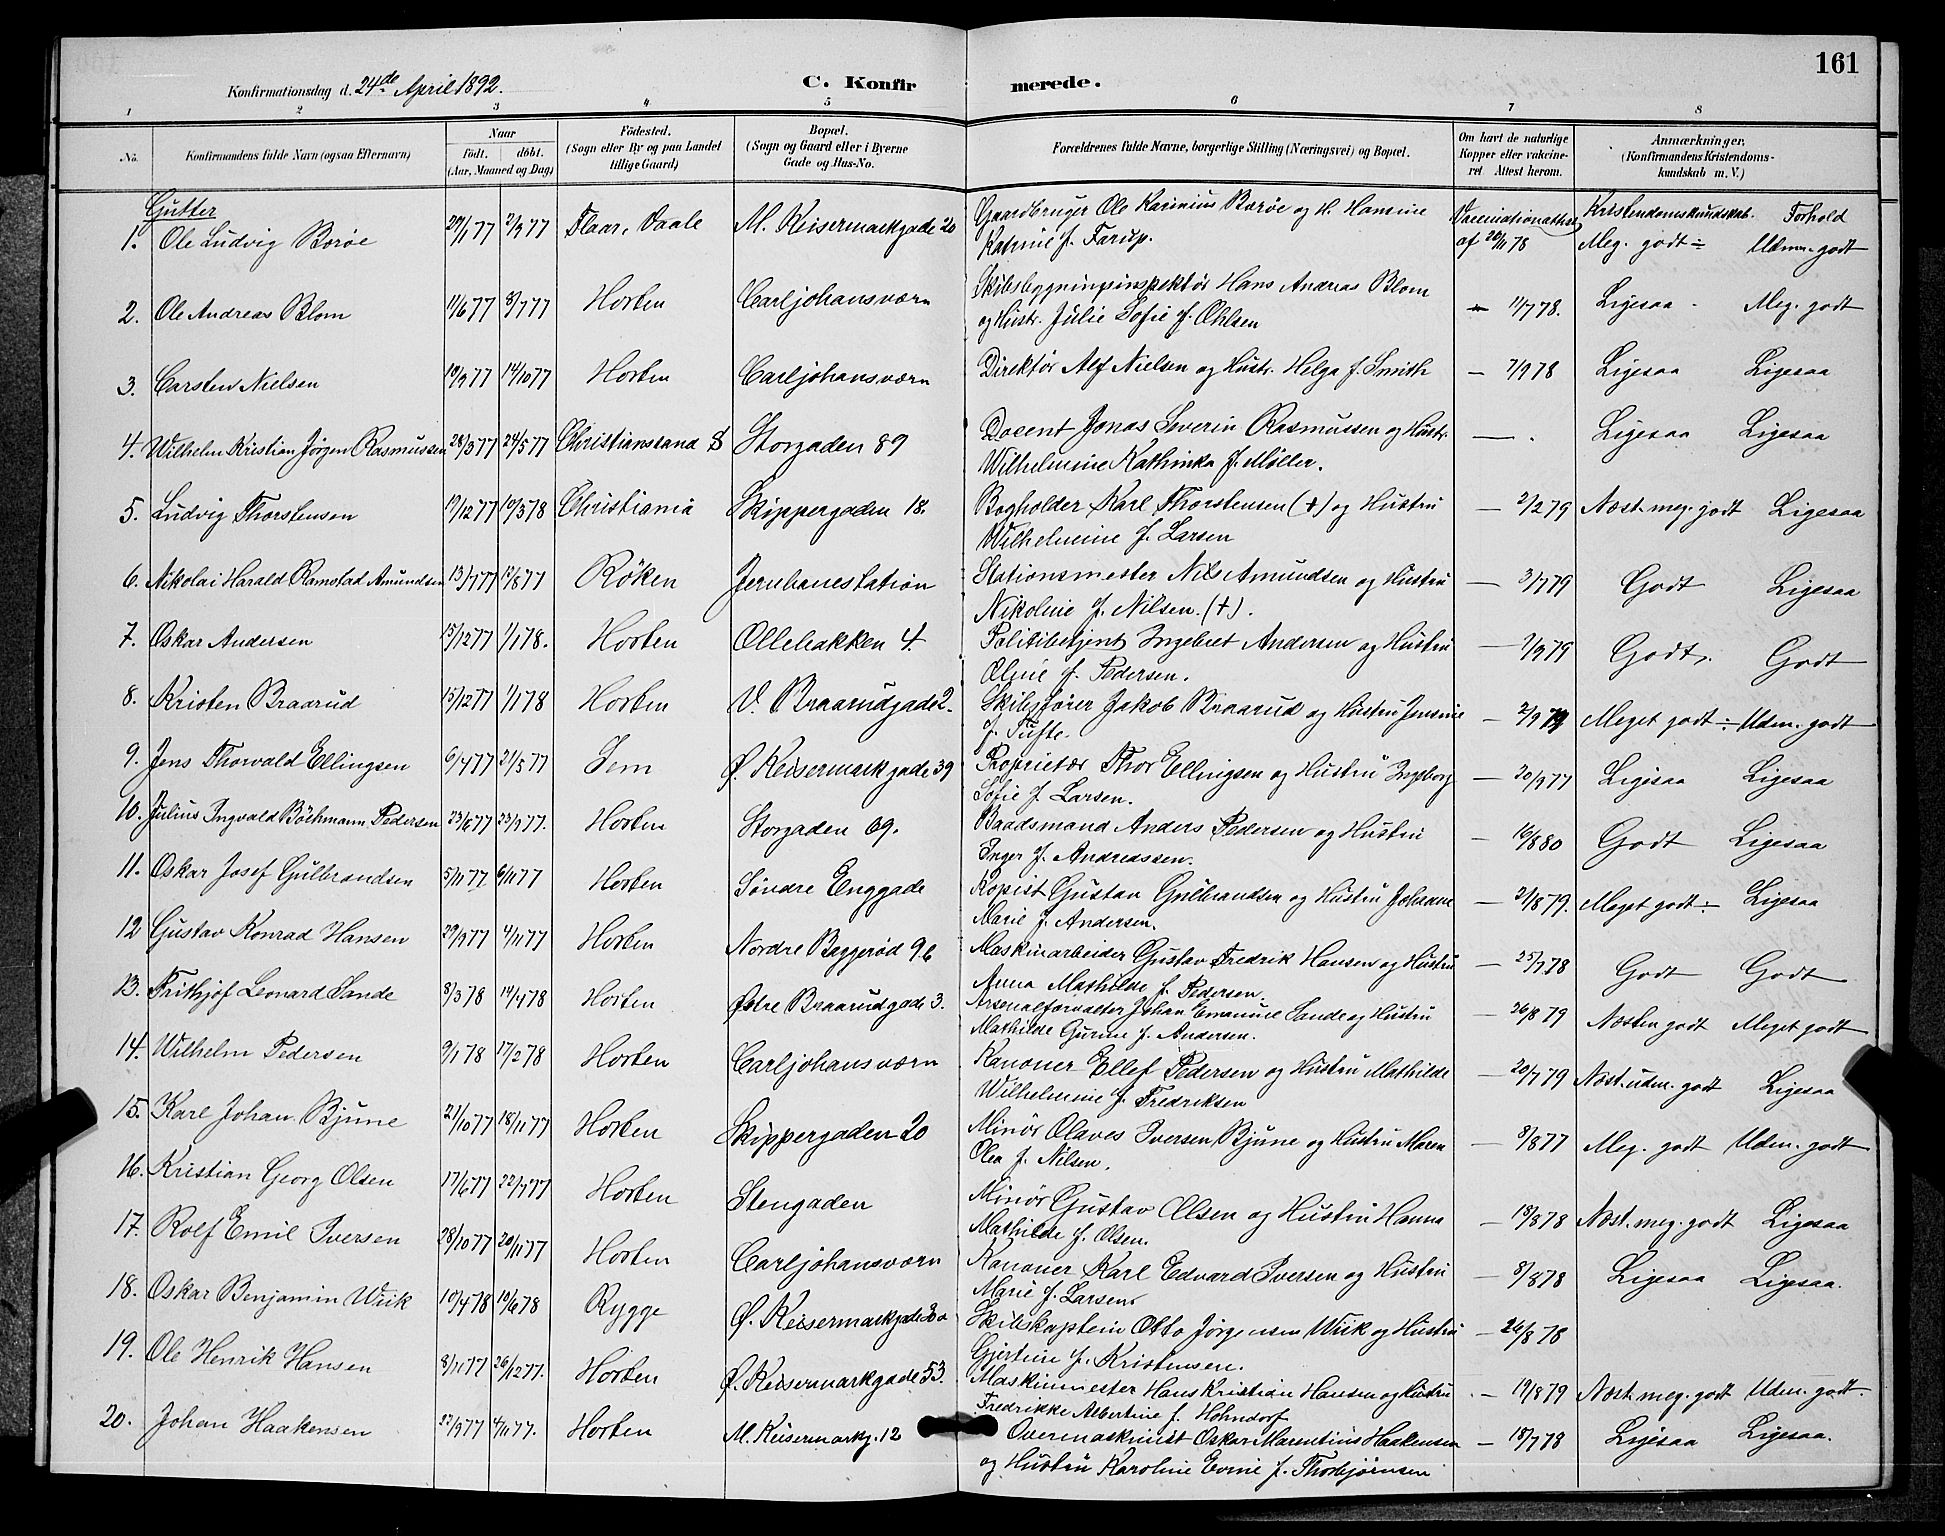 161
Konfirmationsdag d. 24de April 1892.
C. Konfirmerede.
1 2 3 4 5 6 7 8
No. Konfirmandens fulde Navn (ogsaa Efternavn) Naar födt. döbt. (Aar, Maaned og Dag) Födested. (Sogn eller By og paa Landet tillige Gaard) Bopæl. (Sogn og Gaard eller i Byerne Gade og Hus-No. Forældrenes fulde Navne, borgerlige Stilling (Næringsvei) og Bopæl. Om havt de naturlige Kopper eller vakcineret. Attest herom. Anmærkninger. (Konfirmandens Kristendomskundskab m. V.)
Gutter
Kristendomskundskab. Forhold
1. Ole Ludvig Borøe 29/1 77 2/9 77 Flaar, Vaale M. Keisermarkgade 20 Gaardbruger Ole Karinius Borøe og H. Hansine
Katrine f. Farup. Vaccinationattest af 20/11 78 Meg. godt ÷ Udm. godt
2. Ole Andreas Blom 11/6 77 8/7 77 Horten Carljohansværn Skibsbygningsinspektør Hans Andreas Blom
og Hustr. Julie Sofie f. Ohlsen — 11/7 78. Ligesaa Meg. godt
3. Carsten Nielsen 19/9 77 14/10 77 Horten Carljohansværn Direktør Alf Nielsen og Hustr. Helga f. Smith — 7/9 78 Ligesaa Ligesaa
4. Wilhelm Kristian Jørgen Rasmussen 28/3 77 24/5 77 Christianssand S Storgaden 89 Docent Jonas Severin Rasmussen og Hustr.
Wilhelmine Kathinka f. Møller. — Ligesaa Ligesaa
5. Ludvig Thorstensen 19/12 77 10/3 78 Christiania Skippergaden 18. Bogholder Karl Thorstensen (+) og Hustru
Wilhelmine f. Larsen — 2/2 79 Næst. meg. godt Ligesaa
6. Nikolai Harald Ramstad Amundsen 13/7 77 12/8 77 Røken Jernbanestation Stationsmester Nils Amundsen og Hustru
Nikoline f. Nilsen. (+). — 3/7 79 Godt Ligesaa
7. Oskar Andersen 15/12 77 1/1 78. Horten Ollebakken 4. Politibetjent Ingebret Andersen og Hustru
Oline f. Pedersen. — 7/9 79 Godt. Godt
8. Kristen Braarud 15/12 77 1/1 78 Horten V. Braarudgade 2. Skibsfører Jakob Braarud og Hustru Jensine
f. Tufte. — 2/9 79 Meget godt ÷ Udm. godt
9. Jens Thorvald Ellingsen 6/4 77 21/5 77 Sem Ø. Keisermarkgade 39 Proprietær Thor Ellingsen og Hustru Ingeborg
Sofie f. Larsen. — 20/9 77 Ligesaa Ligesaa
10. Julius Ingvald Böchmann Pedersen 23/6 77 23/9 77. Horten Storgaden 69. Baadsmand Anders Pedersen og Hustru
Inger f. Andreassen. — 16/8 80 Godt Ligesaa
11. Oskar Josef Gulbrandsen 5/11 77 6/11 77 Horten Söndre Enggade Kopist Gustav Gulbrandsen og Hustru Johanne
Marie f. Andersen. — 21/8 79. Meget godt ÷ Ligesaa
12 Gustav Konrad Hansen 29/9 77 4/11 77 Horten Nordre Baggerød 96 Maskinarbeider Gustav Fredrik Hansen og Hustru
Anna Mathilde f. Pedersen — 25/7 78 Godt Godt
13. Frithjof Leonard Sande 8/3 78 14/4 78 Horten Østre Braarudgade 3. Arsenalforvalter Johan Emanuel Sande og Hustru
Mathilde Gurine f. Andersen. — 26/8 79 Næsten godt Meget godt
14. Wilhelm Pedersen 9/1 78 17/2 78 Horten Carljohansværn Kanoner Ellef Pedersen og Hustru Mathilde
Wilhelmine f. Fredriksen — 20/7 79 Næst. udm. godt Ligesaa
15. Karl Johan Bjune 21/10 77 18/11 77 Horten Skippergaden 20 Minör Olaves Iversen Bjune og Hustru Maren
Olea f. Nilsen. — 8/8 77 Meg. godt Udm. godt
16. Kristian Georg Olsen 17/6 77 22/7 77 Horten Stengaden Minör Gustav Olsen og Hustru Hanna
Mathilde f. Olsen. — 18/8 78 Næst. meg. godt Ligesaa
17. Rolf Emil Iversen 28/10 77 20/11 77 Horten Carljohansværn Kanoner Karl Edvard Iversen og Hustru
Marie f. Larsen — 8/8 78 Ligesaa Ligesaa.
18. Oskar Benjamin Wiik 10/4 78 10/6 78 Rygge Ø. Keisermarkgade Skibskaptein Otto Jørgensen Wiik og Hustru
Gjertine f. Kristensen. — 26/8 78
19. Ole Henrik Hansen 8/11 77 26/12 77. Horten Ø. Keisermarkgade 53. Maskinmester Hans Kristian Hansen og Hustru
Fredrikke Albertine f. Hohndorf — 19/8 79 Næst. meg. godt Udm. godt.
20. Johan Haakensen 22/9 77 4/11 77. Horten M. Keisermarkg. 12 Overmaskinist Oskar Marentius Haakensen
og Hustru Karoline Evine f. Thorbjørnsen — 18/7 78 Ligesaa Ligesaa.